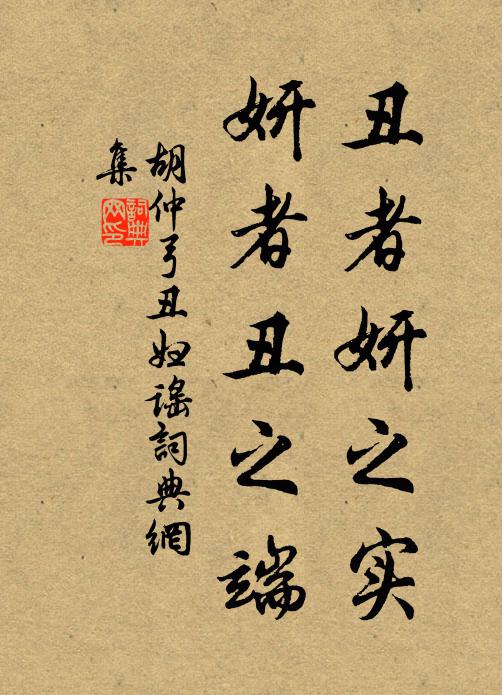 丑者妍之实
妍者丑之端
胡仲弓丑妇谣詞典網
集
詞典
网印